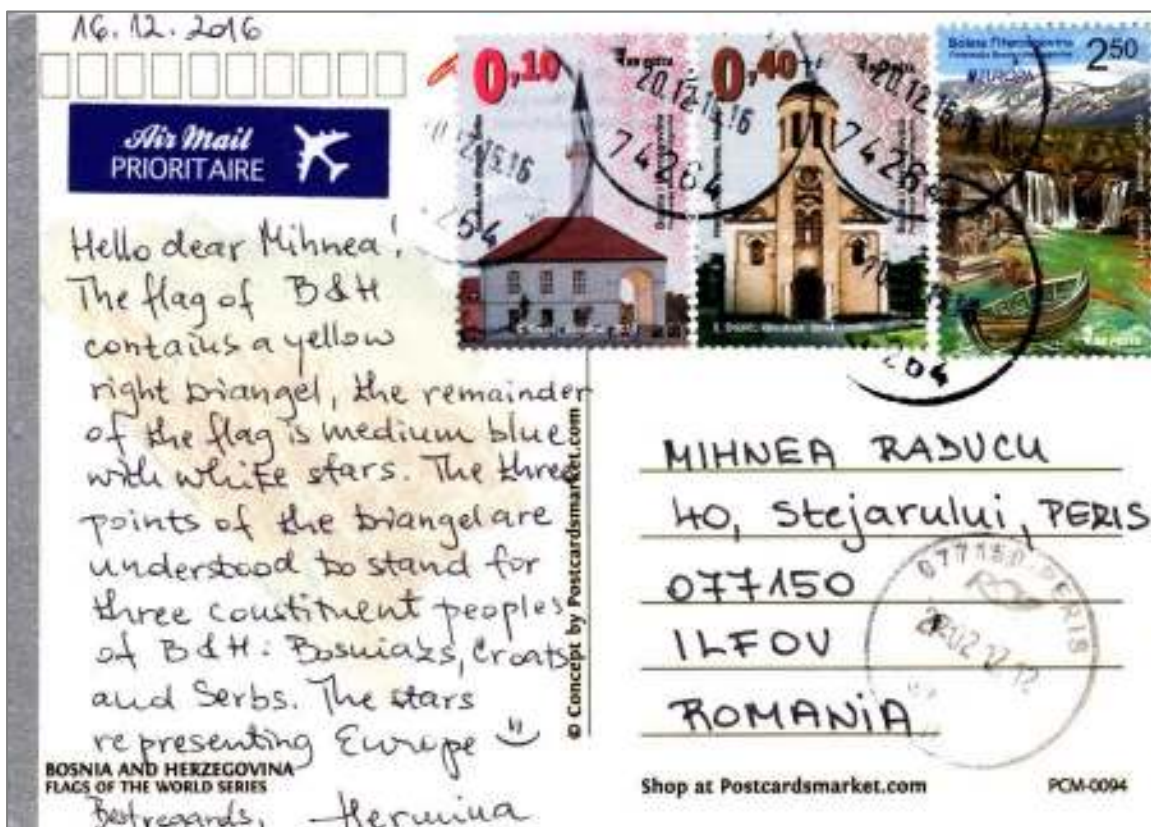 16.12.2016
Air Mail
PRIORITAIRE
0,10
20.12.16.16
74264
0,40
20.12.16.16
74264
Bosna i Hercegovina
2,50
EUROPA
Hello dear Mihnea!
The flag of B&H
contains a yellow
right triangel, the remainder
of the flag is medium blue
with white stars. The three
points of the triangel are
understood to stand for
three constituent peoples
of B&H: Bosniaks, Croats
and Serbs. The stars
representing Europe
BOSNIA AND HERZEGOVINA
FLAGS OF THE WORLD SERIES
Best regards, Hermina
© Concept by Postcardsmarket.com
MIHNEA RADUCU
40, Stejarului, PERIS
077150
ILFOV
ROMANiA
077150 PERIS
Shop at Postcardsmarket.com
PCM-0094